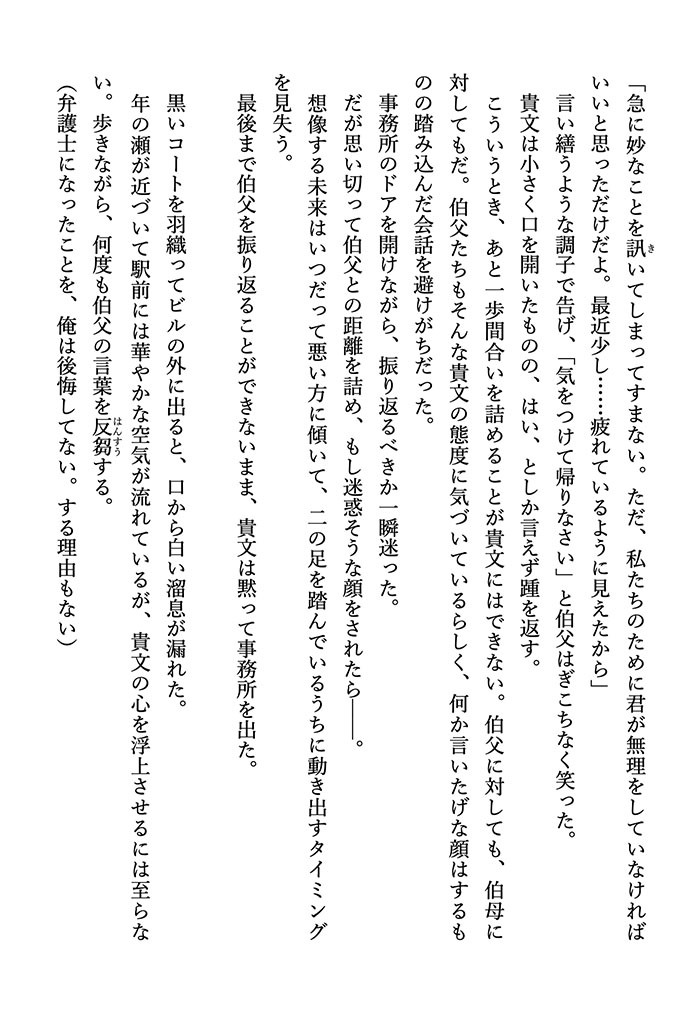 「急に妙なことを訊いてしまってすまない。ただ、私たちのために君が無理をしていなければ
いいと思っただけだよ。最近少し……疲れているように見えたから」
言い繕うような調子で告げ、「気をつけて帰りなさい」と伯父はぎこちなく笑った。
貴文は小さく口を開いたものの、はい、としか言えず踵を返す。
こういうとき、あと一歩間合いを詰めることが貴文にはできない。伯父に対しても、伯母に
対してもだ。伯父たちもそんな貴文の態度に気づいているらしく、何か言いたげな顔はするも
のの踏み込んだ会話を避けがちだった。
事務所のドアを開けながら、振り返るべきか一瞬迷った。
だが思い切って伯父との距離を詰め、もし迷惑そうな顔をされたら――。
想像する未来はいつだって悪い方に傾いて、二の足を踏んでいるうちに動き出すタイミング
を見失う。
最後まで伯父を振り返ることができないまま、貴文は黙って事務所を出た。
黒いコートを羽織ってビルの外に出ると、口から白い溜息が漏れた。
年の瀬が近づいて駅前には華やかな空気が流れているが、貴文の心を浮上させるには至らな
い。歩きながら、何度も伯父の言葉を反芻する。
（弁護士になったことを、俺は後悔してない。する理由もない）